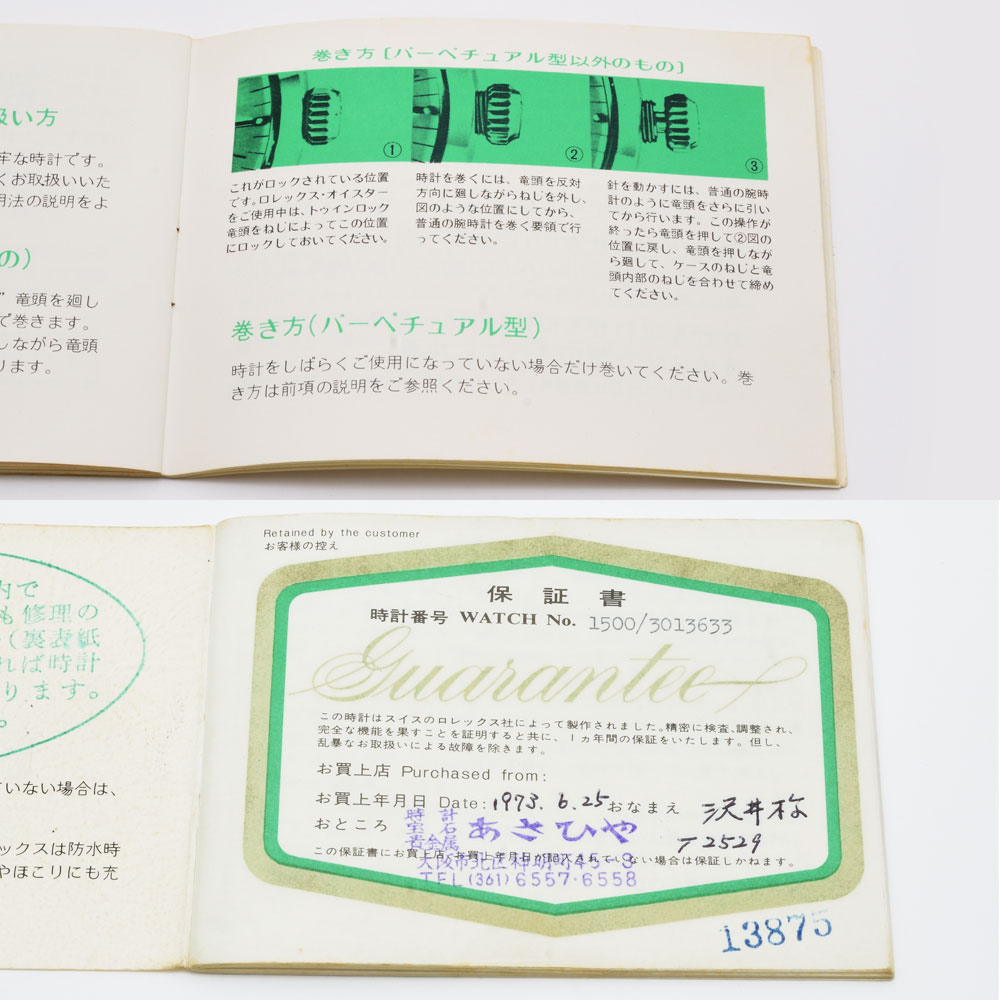 扱い方
牢な時計です。
くお取扱いいた
用法の説明をよ
の)
”竜頭を廻し
で巻きます。
しながら竜頭
ります。
巻き方〔パーペチュアル型以外のもの〕
① ② ③
これがロックされている位置
です。ロレックス・オイスター
をご使用中は、トゥインロック
竜頭をねじによってこの位置
にロックしておいてください。
時計を巻くには、竜頭を反対
方向に廻しながらねじを外し、
図のような位置にしてから、
普通の腕時計を巻く要領で行
ってください。
針を動かすには、普通の腕時
計のように竜頭をさらに引い
てから行います。この操作が
終ったら竜頭を押して②図の
位置に戻し、竜頭を押しなが
ら廻して、ケースのねじと竜
頭内部のねじを合わせて締め
てください。
巻き方(パーペチュアル型)
時計をしばらくご使用になっていない場合だけ巻いてください。巻
き方は前項の説明をご参照ください。
内で
も修理の
(裏表紙
れば時計
ります。
。
ていない場合は、
ックスは防水時
やほこりにも充
Retained by the customer
お客様の控え
保証書
時計番号 WATCH No. 1500/3013633
Guarantee
この時計はスイスのロレックス社によって製作されました。精密に検査、調整され、
完全な機能を果すことを証明すると共に、1ヵ年間の保証をいたします。但し、
乱暴なお取扱いによる故障を除きます。
お買上店 Purchased from:
お買上年月日 Date: 1973.6.25 おなまえ 沢井
おところ
時計
宝石
貴金属
あさひや
T2529
この保証書にお買上店、お買上年月日が記入されていない場合は保証しかねます。
大阪市北区神明町45-8
TEL(361)6557・6558
13875